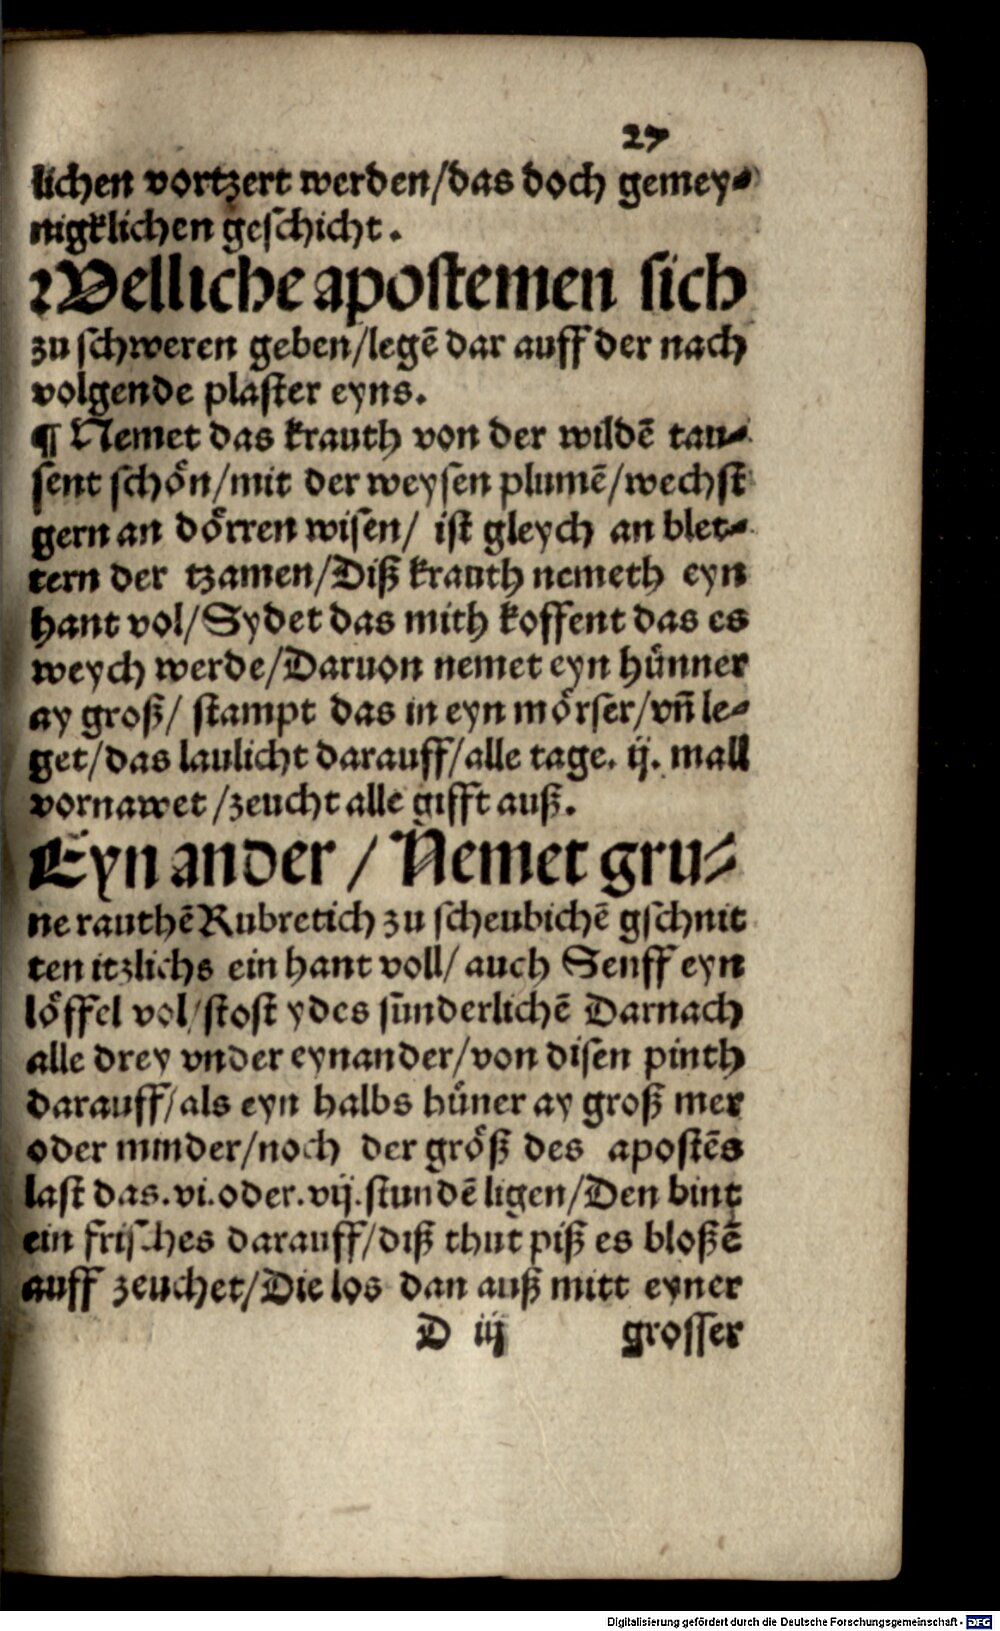 27
lichen vortzert werden/das doch gemey⸗
nigklichen geschicht.
Welliche apostemen sich
zu schweren geben/legē dar auff der nach
volgende plaster eyns.
¶ Nemet das krauth von der wildē tau⸗
sent schön/mit der weysen plumē/wechst
gern an dörren wisen/ ist gleych an blet⸗
tern der tzamen/Diß krauth nemeth eyn
hant vol/Sydet das mith koffent das es
weych werde/Daruon nemet eyn hünner
ay groß/ stampt das in eyn mörser/vn̄ le⸗
get/das laulicht darauff/alle tage. ij. mall
vornawet /zeucht alle gifft auß.
Eyn ander / Nemet gru⸗
ne rauthē Rubretich zu scheubichē gschnit
ten itzlichs ein hant voll/ auch Senff eyn
löffel vol/stost ydes sūnderlichē Darnach
alle drey vnder eynander/von disen pinth
darauff/als eyn halbs hüner ay groß mer
oder minder/noch der größ des apostēs
last das.vi.oder.vij.stundē ligen/Den bint
ein frisches darauff/diß thut piß es bloßē
auff zeuchet/Die los dan auß mitt eyner
D iij grosser
Digitalisierung gefördert durch die Deutsche Forschungsgemeinschaft - DFG